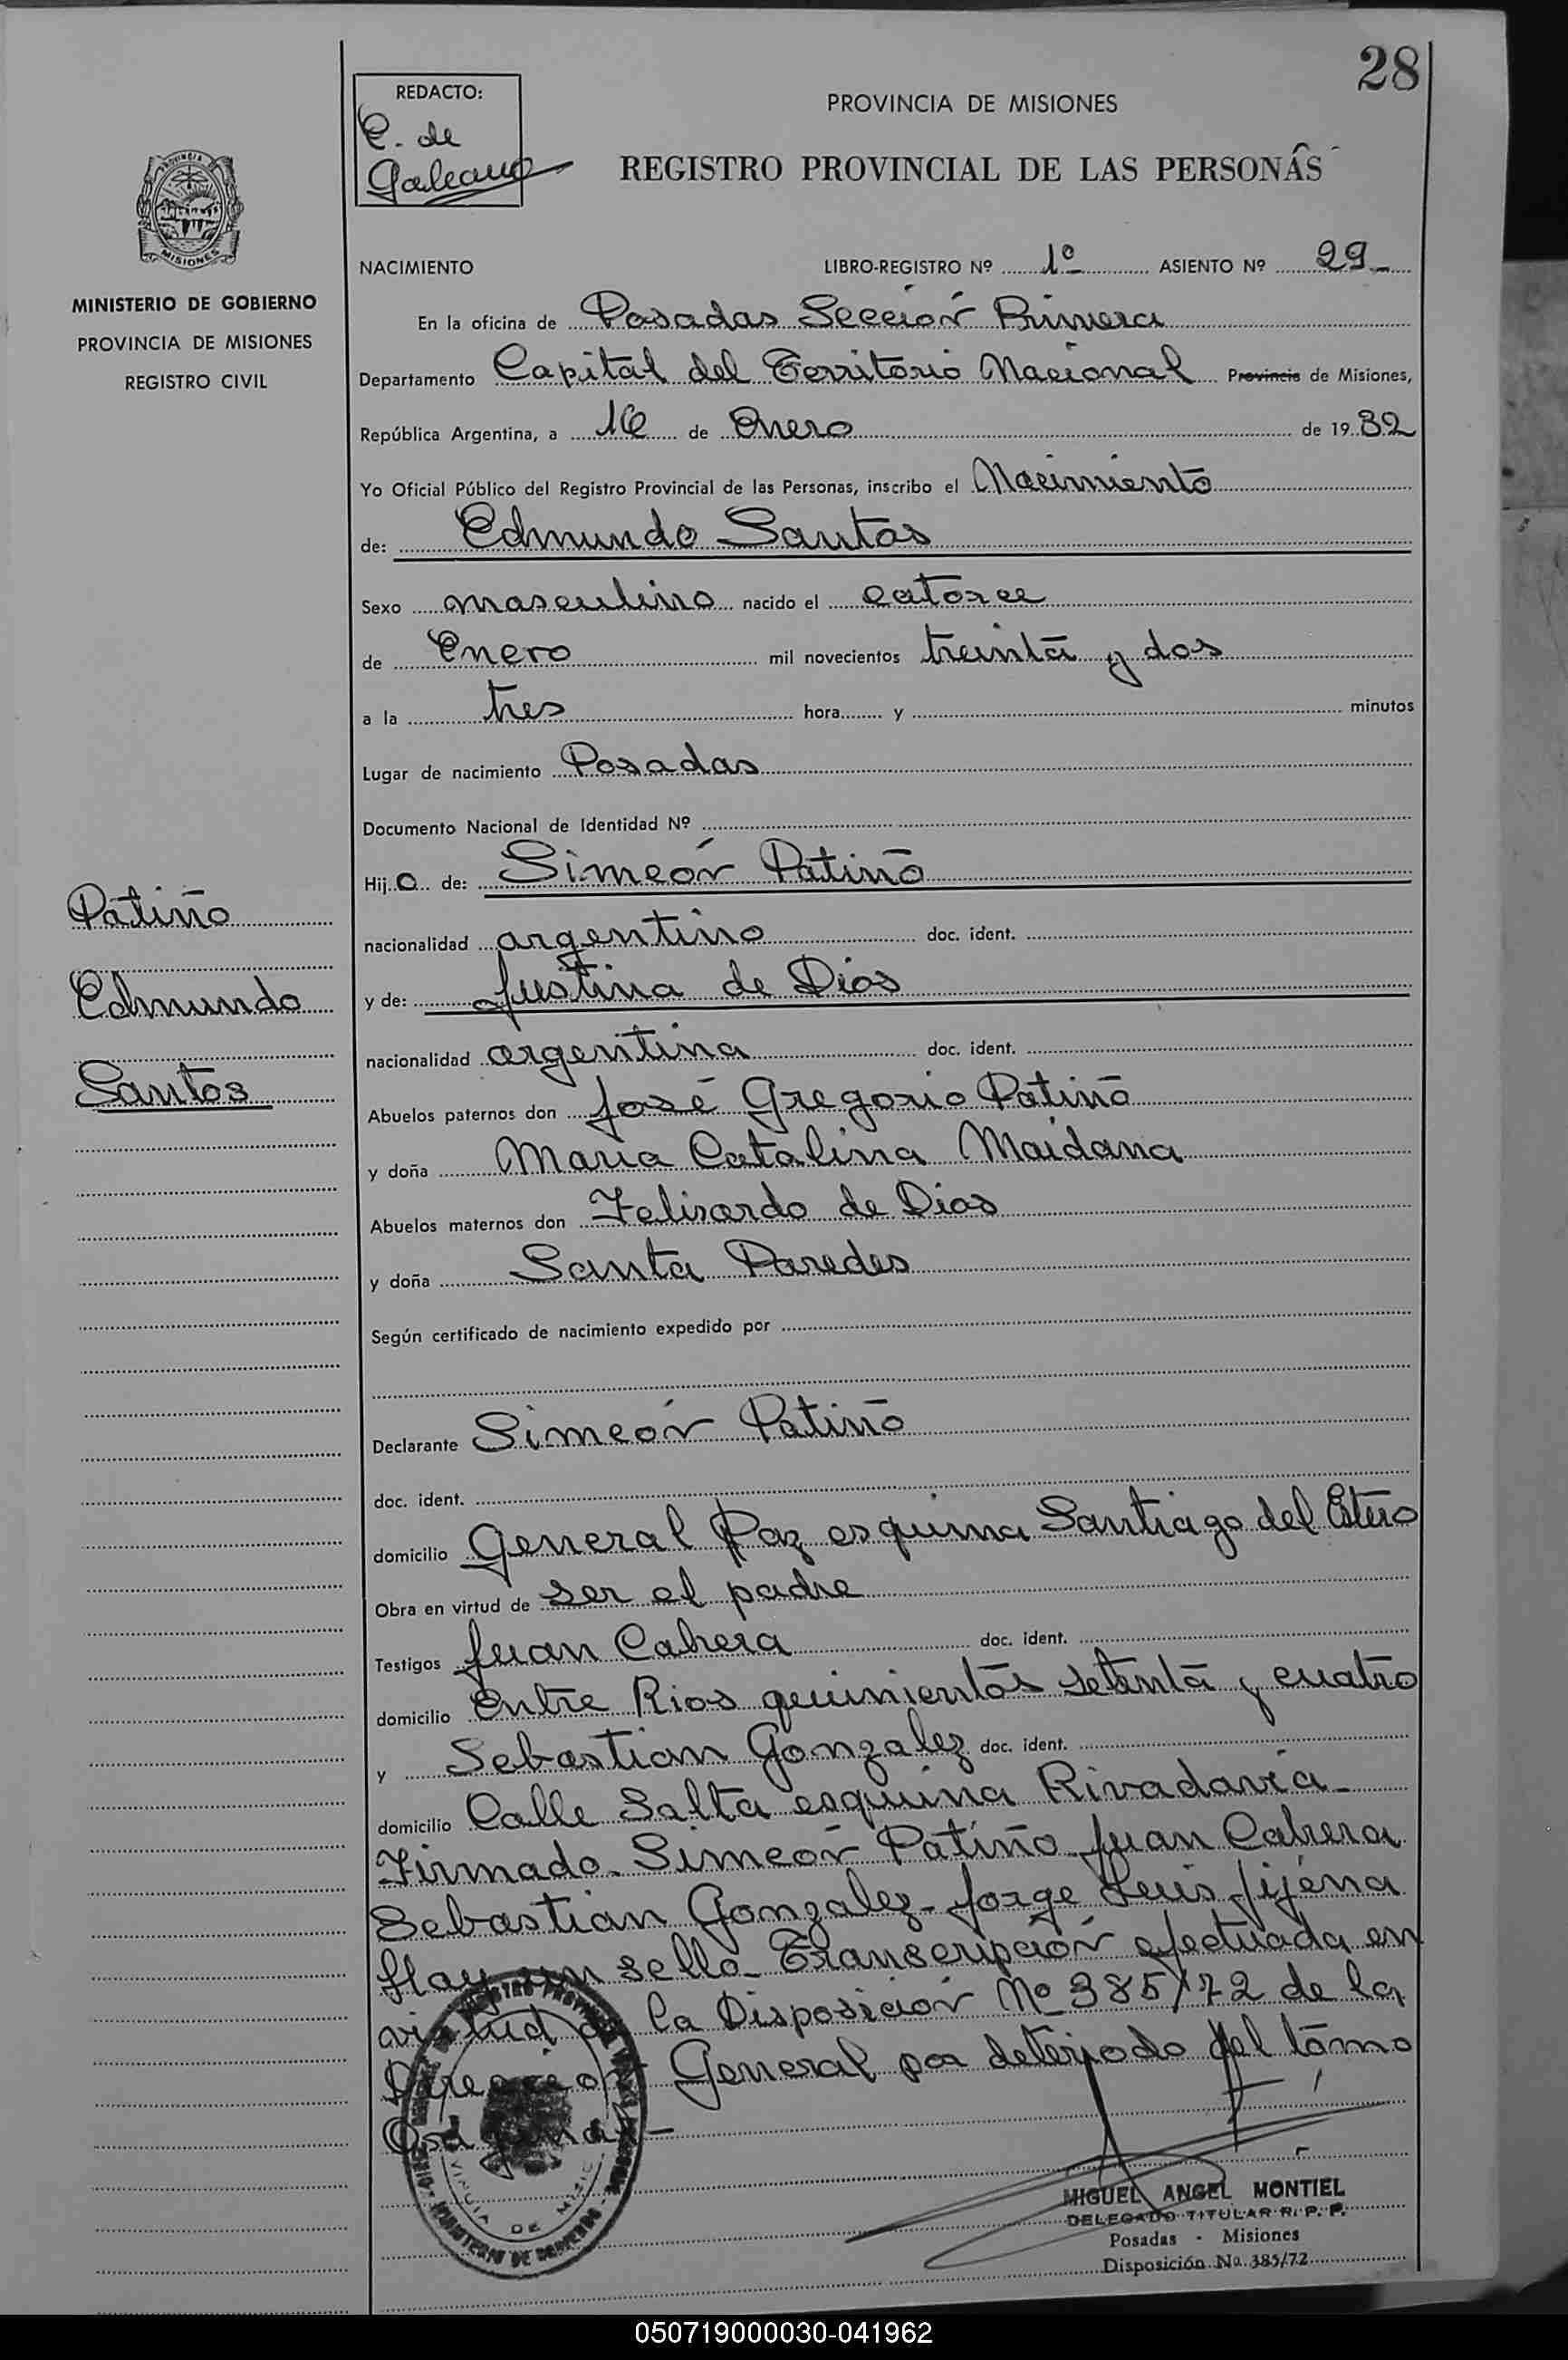 28
REDACTO:
E. de
Galeano
PROVINCIA DE MISIONES
REGISTRO PROVINCIAL DE LAS PERSONAS
PROVINCIA DE
MISIONES
MINISTERIO DE GOBIERNO
PROVINCIA DE MISIONES
REGISTRO CIVIL
NACIMIENTO LIBRO-REGISTRO Nº 1º ASIENTO Nº 29-
En la oficina de Posadas Sección Primera
Departamento Capital del Territorio Nacional Provincia de Misiones,
República Argentina, a 16 de Enero de 1932
Yo Oficial Público del Registro Provincial de las Personas, inscribo el Nacimiento
de: Edmundo Santos
Sexo masculino nacido el catorce
de Enero mil novecientos treinta y dos
a la tres hora y minutos
Lugar de nacimiento Posadas
Documento Nacional de Identidad Nº
Hijo de: Simeón Patiño
nacionalidad argentino doc. ident.
y de: Justina de Dios
nacionalidad argentina doc. ident.
Abuelos paternos don José Gregorio Patiño
y doña Maria Catalina Maidana
Abuelos maternos don Felisardo de Dios
y doña Santa Paredes
Según certificado de nacimiento expedido por
Declarante Simeón Patiño
doc. ident.
domicilio General Paz esquina Santiago del Estero
Obra en virtud de ser el padre
Testigos Juan Cabrera doc. ident.
domicilio Entre Rios quinientos setenta y cuatro
y Sebastian Gonzalez doc. ident.
domicilio Calle Salta esquina Rivadavia-
Firmado- Simeón Patiño Juan Cabrera
Sebastian Gonzalez- Jorge Luis Jijena
Hay un sello- Transcripción efectuada en
virtud de la Disposición Nº 385/72 de la
Dirección General por deteriodo del tomo
Original-
Patiño
Edmundo
Santos
MINISTERIO DE GOBIERNO
MIGUEL ANGEL MONTIEL
DELEGADO TITULAR R. P. P.
Posadas - Misiones
Disposición Nº 385/72
050719000030-041962